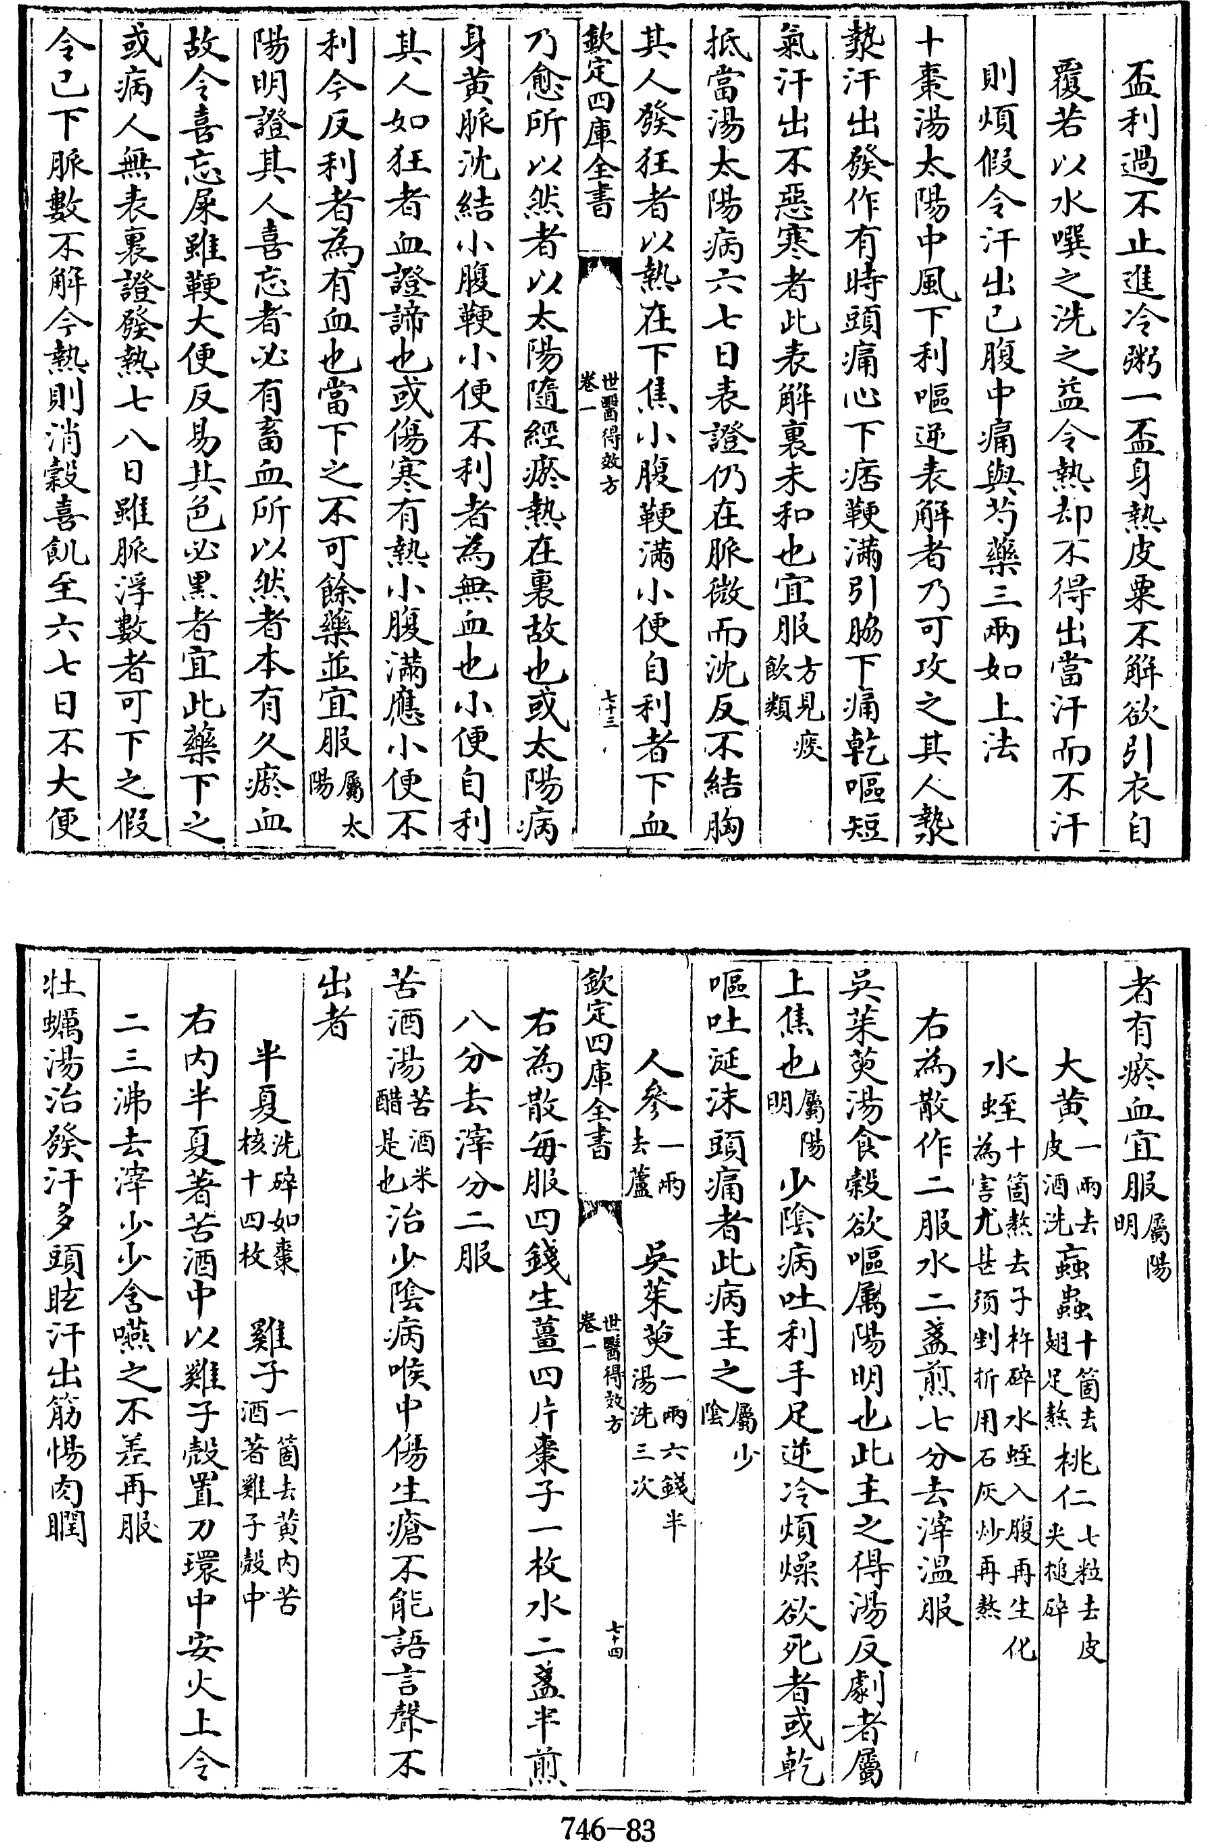 盃利過不止進冷粥一盃身熱皮粟不解欲引衣自
覆若以水噀之洗之益令熱却不得出當汗而不汗
則煩假令汗出已腹中痛與芍藥三兩如上法
十棗湯太陽中風下利嘔逆表解者乃可攻之其人漐
漐汗出發作有時頭痛心下痞鞕滿引脇下痛乾嘔短
氣汗出不惡寒者此表解裏未和也宜服方見痰飲類
抵當湯太陽病六七日表證仍在脈微而沈反不結胸
其人發狂者以熱在下焦小腹鞕滿小便自利者下血
欽定四庫全書 世醫得效方 卷一 七十三
乃愈所以然者以太陽隨經瘀熱在裏故也或太陽病
身黃脈沈結小腹鞕小便不利者為無血也小便自利
其人如狂者血證諦也或傷寒有熱小腹滿應小便不
利今反利者為有血也當下之不可餘藥並宜服屬太陽
陽明證其人喜忘者必有畜血所以然者本有久瘀血
故令喜忘屎雖鞕大便反易其色必黑者宜此藥下之
或病人無表裏證發熱七八日雖脈浮數者可下之假
令已下脈數不解今熱則消穀喜飢至六七日不大便
者有瘀血宜服屬陽明
大黃一兩去皮酒洗 蝱蟲十箇去翅足熬 桃仁二七粒去皮尖搥碎
水蛭十箇熬去子杵碎水蛭入腹再生化為害尤甚須剉折用石灰炒再熬
右為散作二服水二盞煎七分去滓溫服
吳茱萸湯食穀欲嘔屬陽明也此主之得湯反劇者屬
上焦也屬陽明少陰病吐利手足逆冷煩燥欲死者或乾
嘔吐涎沫頭痛者此病主之屬少陰
人參一兩去蘆 吳茱萸一兩六錢半湯洗三次
欽定四庫全書 世醫得效方 卷一 七十四
右為散每服四錢生薑四片棗子一枚水二盞半煎
八分去滓分二服
苦酒湯苦酒米醋是也治少陰病喉中傷生瘡不能語言聲不
出者
半夏洗碎如棗核十四枚 雞子一箇去黃內苦酒著雞子殼中
右內半夏著苦酒中以雞子殼置刀環中安火上令
二三沸去滓少少含嚥之不差再服
牡蠣湯治發汗多頭眩汗出筋惕肉瞤
746-83